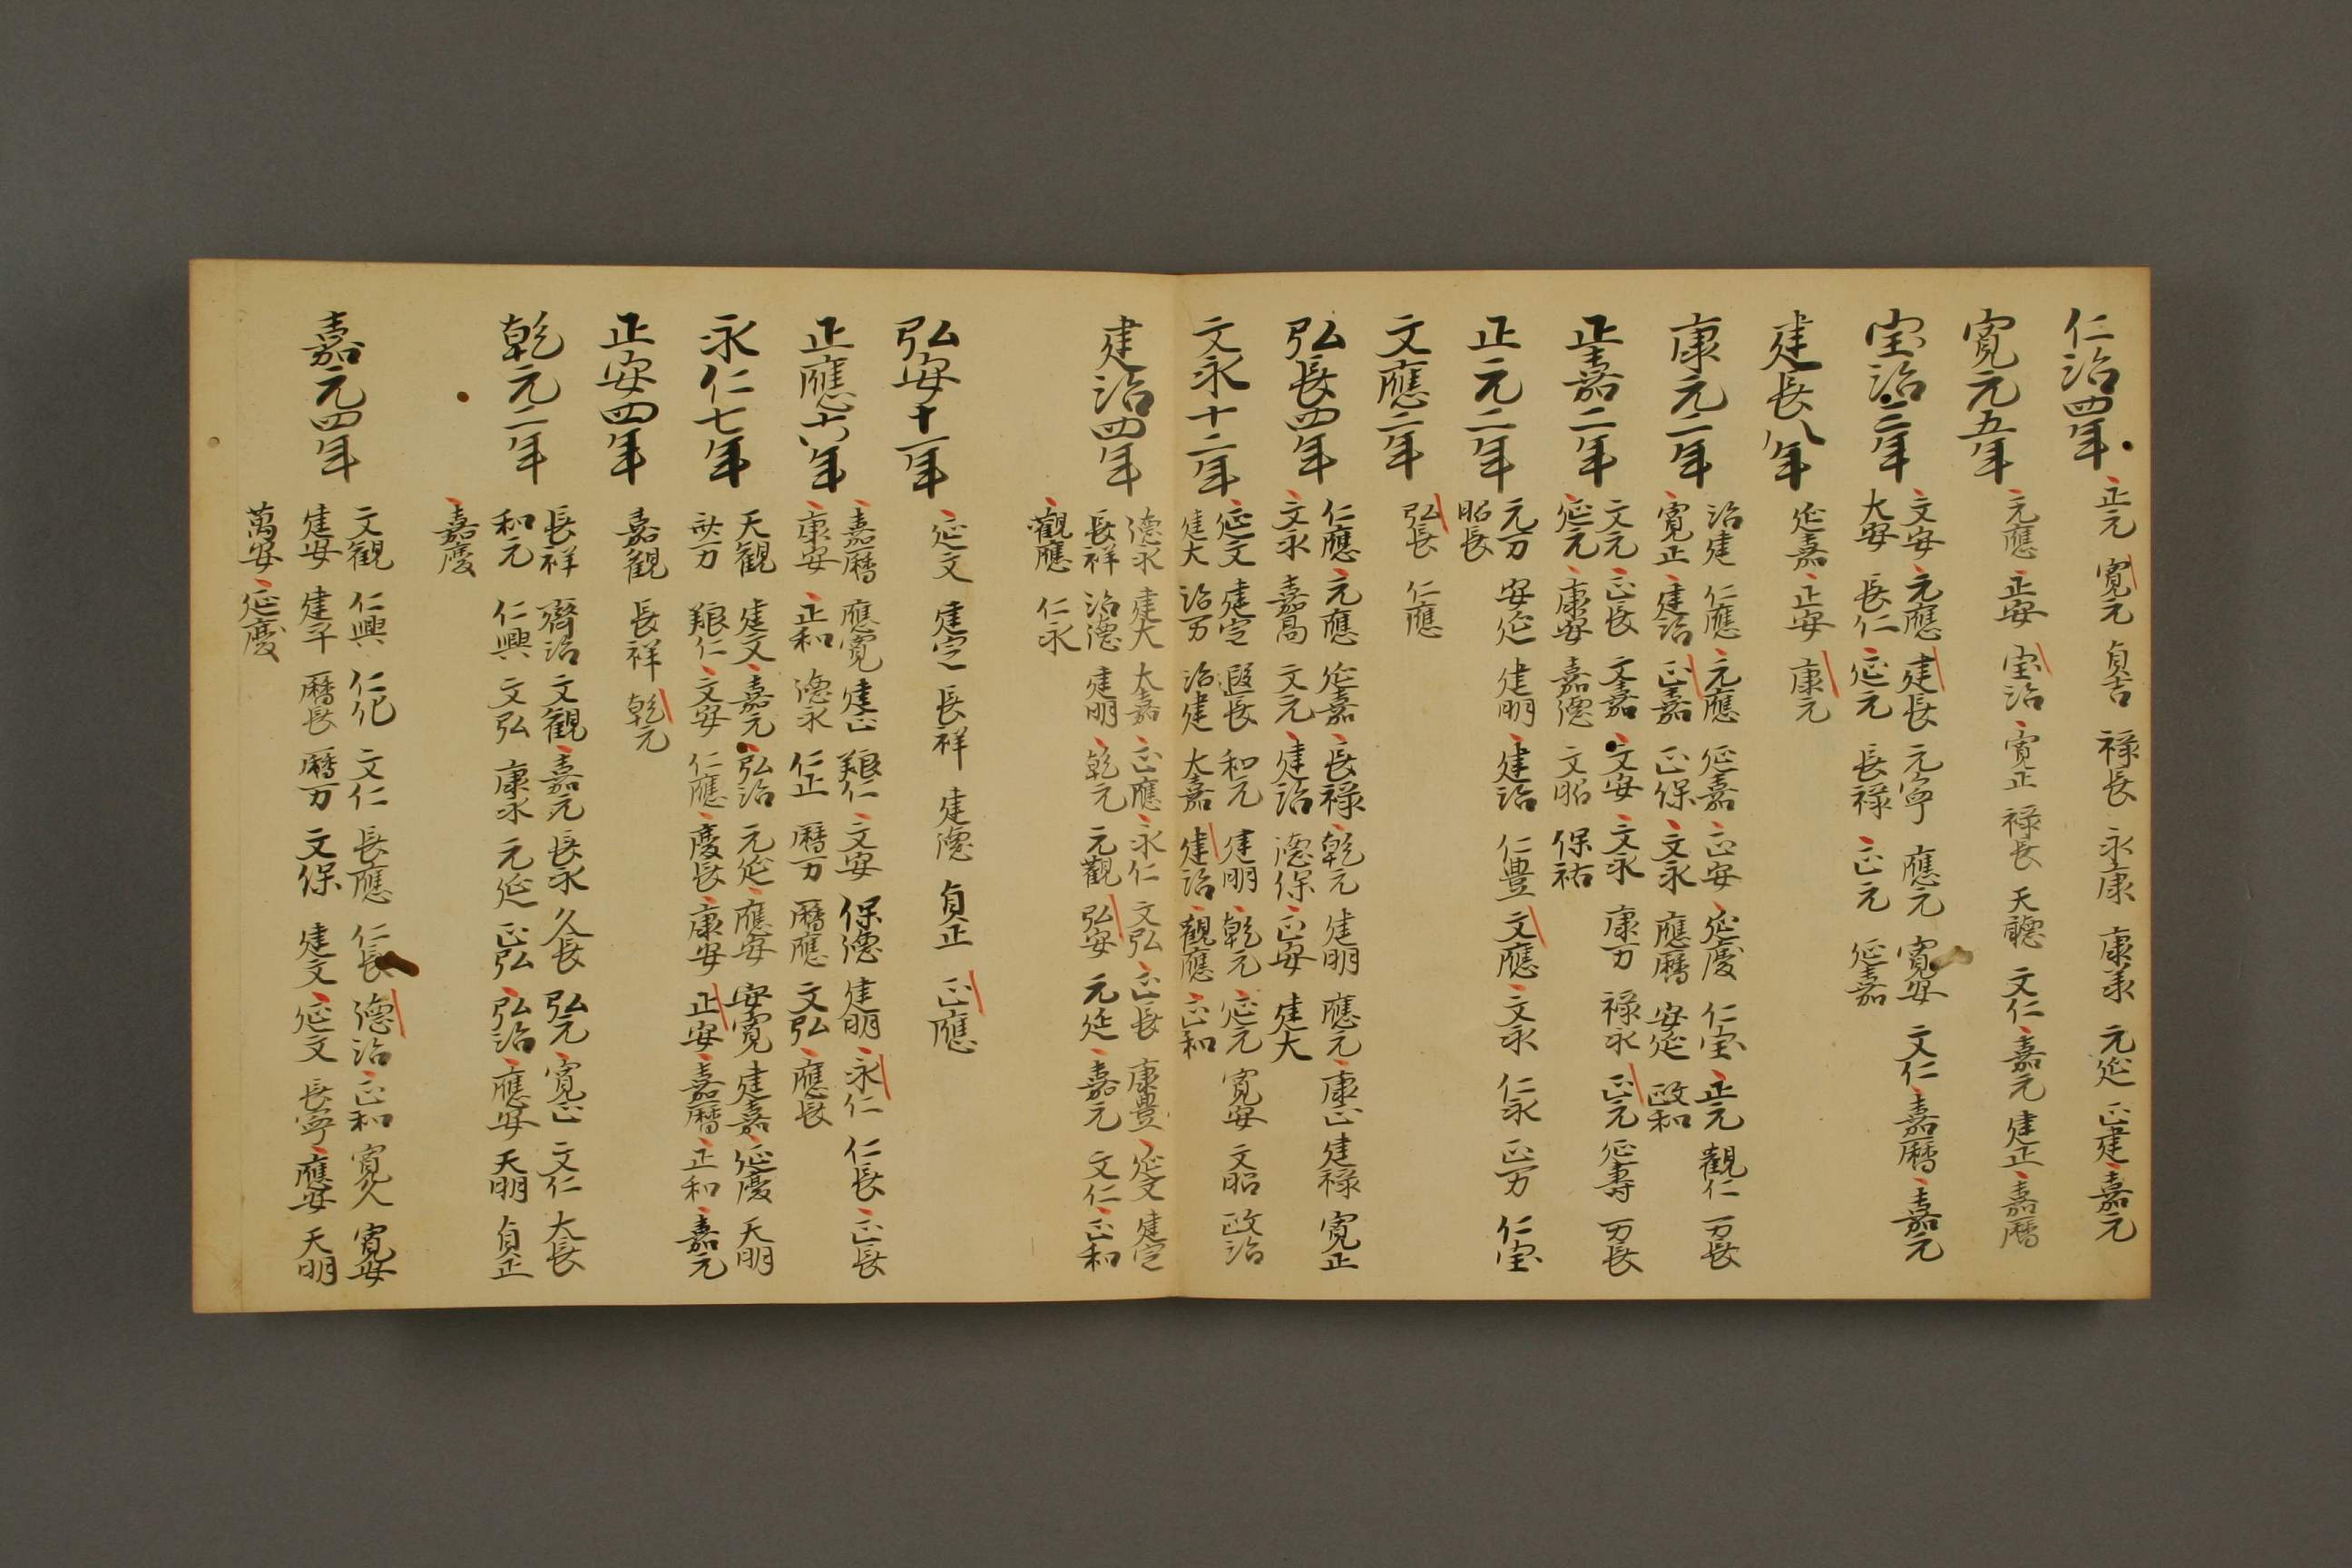 仁治四年
正元 寛元 貞吉 禄長 永康 康美 元延 正建 嘉元
寛元五年
元應 正安 宝治 寛正 禄長 天聴 文仁 嘉元 建正 嘉暦
宝治三年
文安 元應 建長 元寧 應元 寛安 文仁 嘉暦 嘉元
大安 長仁 延元 長禄 正元 延嘉
建長八年
延嘉 正安 康元
康元二年
治建 仁應 元應 延嘉 正安 延慶 仁宝 正元 観仁 万長
寛正 建治 正嘉 正保 文永 應暦 安延 政和
正嘉二年
文元 正長 文嘉 文安 文永 康万 禄永 正元 延寿 万長
延元 康安 嘉徳 文昭 保祐
正元二年
元万 安延 建明 建治 仁豊 文應 文永 仁永 正万 仁宝
昭長
文應二年
弘長 仁應
弘長四年
仁應 元應 延嘉 長禄 乾元 建明 應元 康正 建禄 寛正
文永 嘉高 文元 建治 徳保 正安 建大
文永十二年
延文 建定 遐長 和元 建明 乾元 延元 寛安 文昭 政治
建大 治万 治建 大嘉 建治 観應 正和
建治四年
徳永 建大 大嘉 正應 永仁 文弘 正長 康豊 延文 建定
長祥 治徳 建明 乾元 元観 弘安 元延 嘉元 文仁 正和
観應 仁永
弘安十一年
延文 建定 長祥 建徳 貞正 正應
正應六年
嘉暦 應寛 建正 仁 文安 保徳 建明 永仁 仁長 正長
康安 正和 徳永 仁正 暦万 暦應 文弘 應長
永仁七年
天観 建文 嘉元 弘治 元延 應安 安寛 建嘉 延慶 天明
万 仁 文安 仁應 慶長 康安 正安 嘉暦 正和 嘉元
正安四年
嘉観 長祥 乾元
乾元二年
長祥 齊治 文観 嘉元 長永 久長 弘元 寛正 文仁 大長
和元 仁興 文弘 康永 元延 正弘 弘治 應安 天明 貞正
嘉慶
嘉元四年
文観 仁興 仁化 文仁 長應 仁長 徳治 正和 寛久 寛安
建安 建平 暦長 暦万 文保 建文 延文 長寧 應安 天明
萬安 延慶